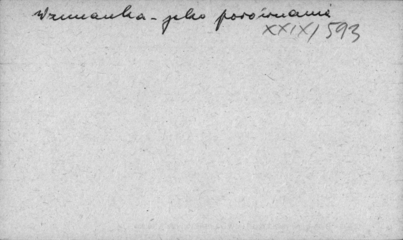 Wzmianka - jako porównanie
XXIX/593